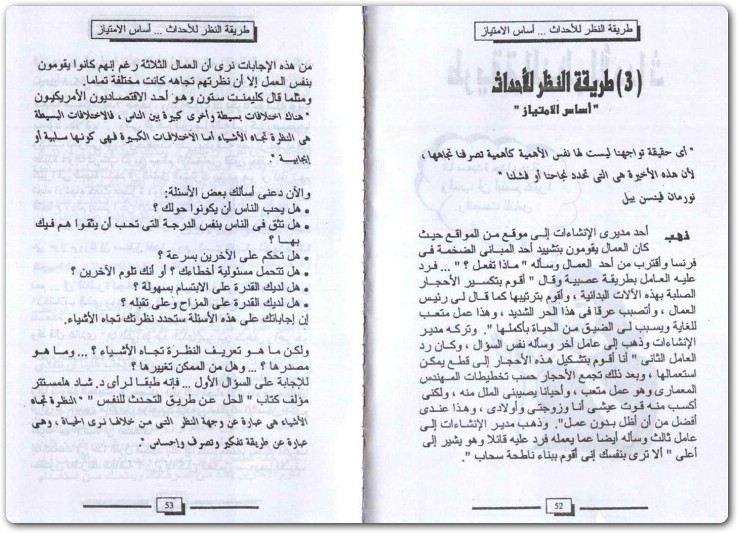 طريقة النظر للأحداث ... أساس الامتياز
(3) طريقة النظر للأحداث
"أساس الامتياز"
" أى حقيقة تواجهنا ليست لها نفس الأهمية كأهمية تصرفنا تجاهها ،
لأن هذه الأخيرة هى التى تحدد نجاحنا أو فشلنا "
نورمان فينسن بيل
ذهب أحد مديرى الإنشاءات إلى موقع من المواقع حيث
كان العمال يقومون بتشييد أحد المبانى الضخمة فى
فرنسا وأقترب من أحد العمال وسأله " ماذا تفعل ؟ " ... فرد
عليه العامل بطريقة عصبية وقال " أقوم بتكسير الأحجار
الصلبة بهذه الآلات البدائية ، وأقوم بترتيبها كما قال لى رئيس
العمال ، وأتصبب عرقا فى هذا الحر الشديد ، وهذا عمل متعب
للغاية ويسبب لى الضيق من الحياة بأكملها ". وتركه مدير
الإنشاءات وذهب إلى عامل أخر وسأله نفس السؤال ، وكان رد
العامل الثانى " أنا أقوم بتشكيل هذه الأحجار إلى قطع يمكن
استعمالها ، وبعد ذلك تجمع الأحجار حسب تخطيطات المهندس
المعمارى وهو عمل متعب ، وأحيانا يصيبنى الملل منه ، ولكنى
أكسب منه قوت عيشى أنا وزوجتى وأولادى ، وهذا عندى
أفضل من أن أظل بدون عمل". وذهب مدير الإنشاءات إلى
عامل ثالث وسأله أيضا عما يعمله فرد عليه قائلا وهو يشير إلى
أعلى " ألا ترى بنفسك إنى أقوم ببناء ناطحة سحاب ".
52
طريقة النظر للأحداث ... أساس الامتياز
من هذه الإجابات نرى أن العمال الثلاثة رغم إنهم كانوا يقومون
بنفس العمل إلا أن نظرتهم تجاهه كانت مختلفة تماما.
ومثلما قال كليمنت ستون وهو أحد الاقتصاديون الأمريكيون
"هناك اختلافات بسيطة وأخرى كبيرة بين الناس ، فالاختلافات البسيطة
هى النظرة تجاه الأشياء أما الأختلافات الكبيرة فهى كونها سلبية أو
إيجابية ".
والآن دعنى أسألك بعض الأسئلة:
• هل يحب الناس أن يكونوا حولك ؟
• هل تثق فى الناس بنفس الدرجة التى تحب أن يثقوا هم فيك
بها ؟
• هل تحكم على الآخرين بسرعة ؟
• هل تتحمل مسئولية أخطاءك ؟ أو أنك تلوم الآخرين ؟
• هل لديك القدرة على الابتسام بسهولة ؟
• هل لديك القدرة على المزاح وعلى تقبله ؟
إن إجاباتك على هذه الأسئلة ستحدد نظرتك تجاه الأشياء.
ولكن ما هو تعريف النظرة تجاه الأشياء ؟ ... وما هو
مصدرها ؟ ... وهل من الممكن تغييرها ؟
للإجابة على السؤال الأول ... فإنه طبقا لرأى د. شاد هلمستتر
مؤلف كتاب " الحل عن طريق التحدث للنفس " "النظرة تجاه
الأشياء هى عبارة عن وجهة النظر التى من خلالها نرى الحياة ، وهى
عبارة عن طريقة تفكير وتصرف واحساس ".
53